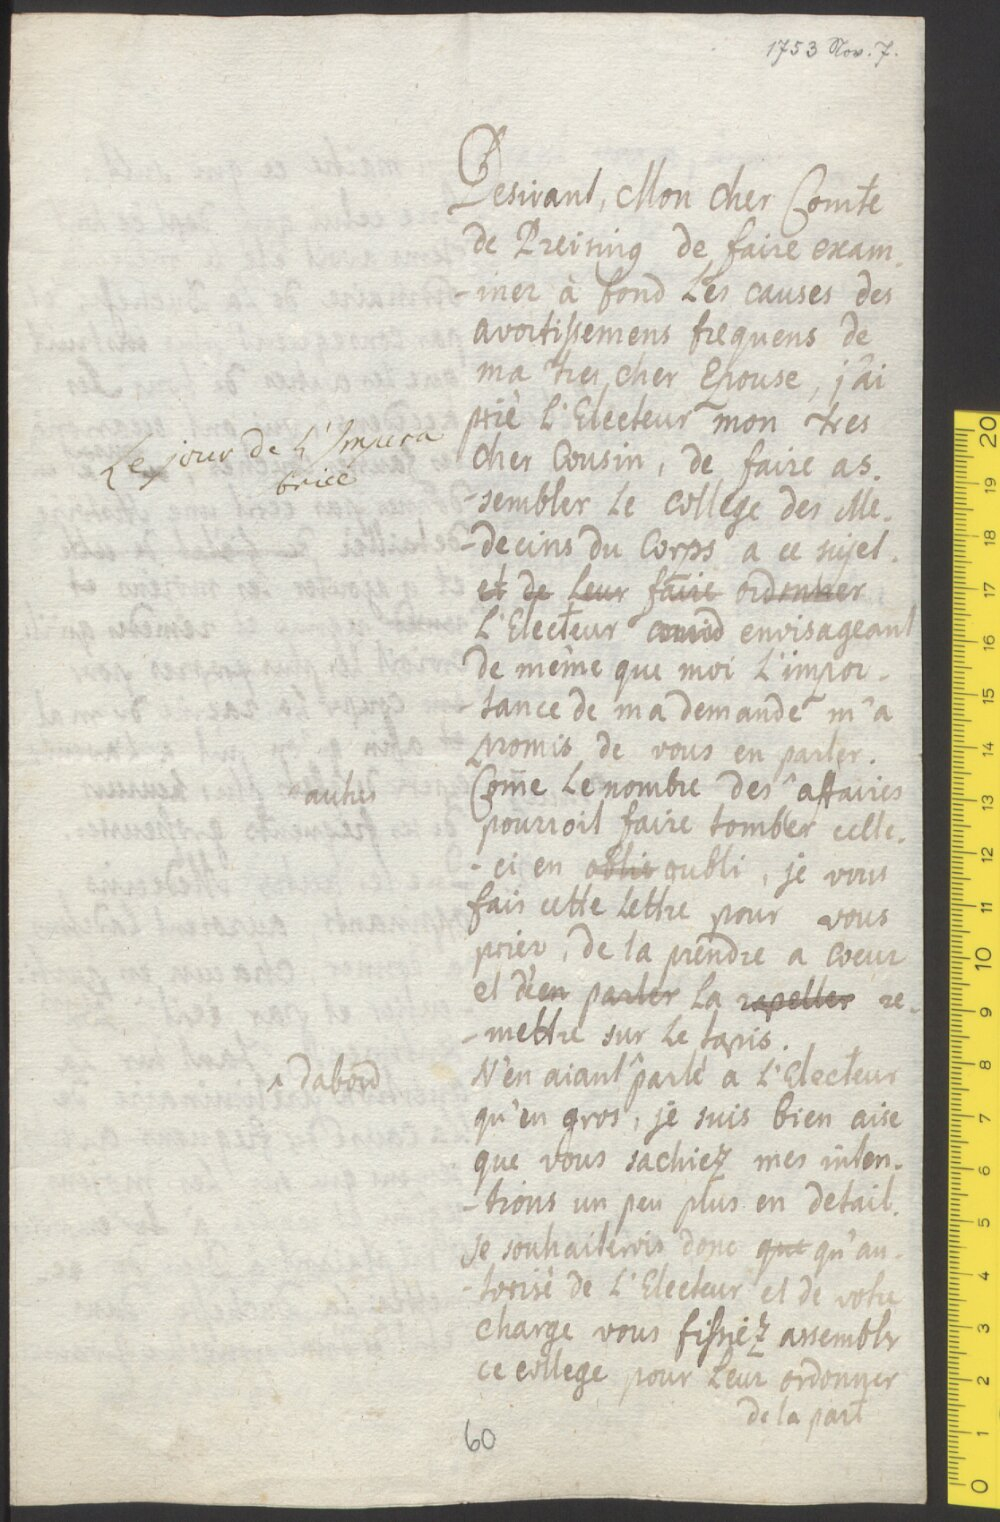 1753 Nov. 7.
Desirant, Mon cher Comte
de Preising de faire exam-
-iner à fond Les causes des
avortissemens frequens de
ma tres cher Epouse, j'ai
prié L'Electeur mon tres
cher Cousin, de faire as-
-sembler Le college des Me-
-decins du Corps a ce sujet.
et de Leur faire ordonner
L'Electeur envisageant
de même que moi L'impor-
-tance de ma demande m'a
promis de vous en parler.
Com̄e Le nombre des ^ affaires
pourroit faire tomber celle-
-ci en oubli oubli, je vous
fais cette Lettre pour vous
prier, de la prendre a coeur
et d'en parler La rapeller re-
-mettre sur Le tapis.
N'en aiant ^ parlé a L'Electeur
qu'en gros, je suis bien aise
que vous sachiez mes inten-
-tions un peu plus en detail.
Je souhaiterois donc que qu'au-
-torisé de L'Electeur et de votre
charge vous fissiéz assembler
ce college pour Leur ordonner
de la part
Le jour de L'Impera
trice
^ autres
^ dabord
60
0 1 2 3 4 5 6 7 8 9 10 11 12 13 14 15 16 17 18 19 20